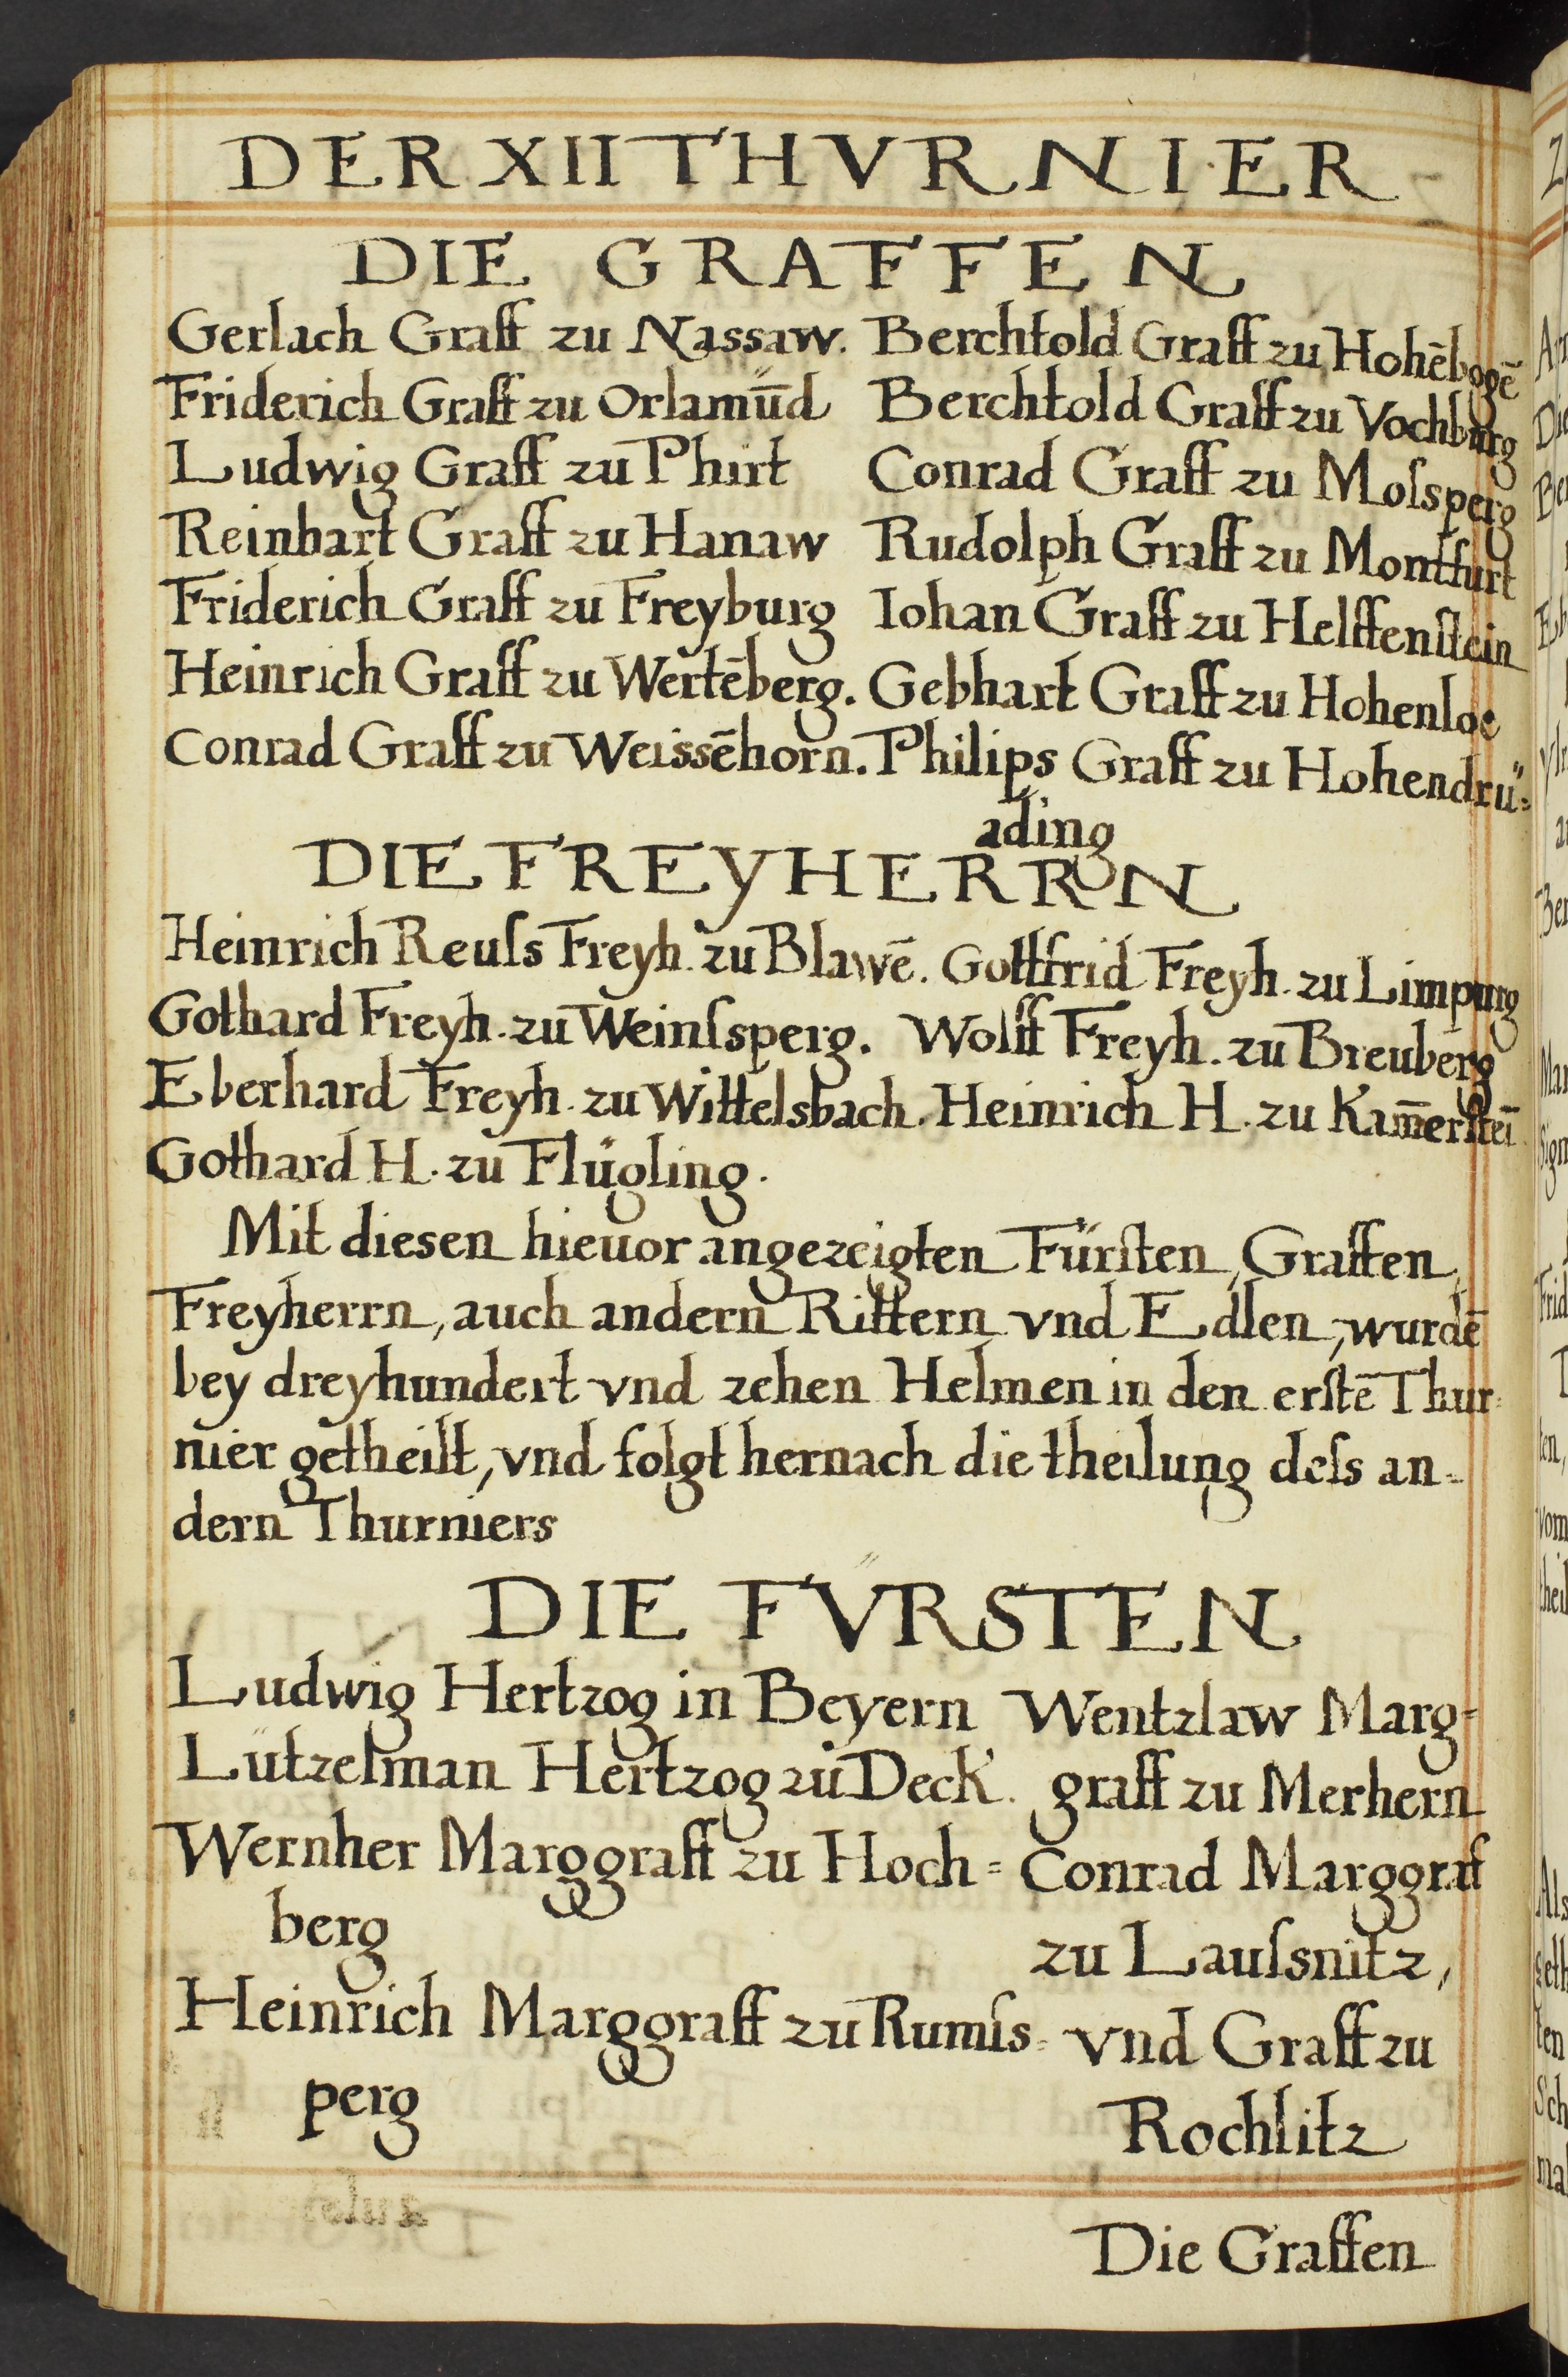 DER XII THVRNIER
DIE GRAFFEN
Gerlach Graff zu Nassaw. Berchtold Graff zu Hohēbogē
Friderich Graff zu Orlamūd Berchtold Graff zu Vochburg
Ludwig Graff zu Phirt Conrad Graff zu Moſsperg
Reinhart Graff zu Hanaw Rudolph Graff zu Montfurt
Friderich Graff zu Freyburg Iohan Graff zu Helffenſtein
Heinrich Graff zu Wertēberg. Gebhart Graff zu Hohenloe
Conrad Graff zu Weissēhorn. Philips Graff zu Hohendrü=
ading
DIE FREYHERRN
Heinrich Reuſs Freyh. zu Blawē. Gottfrid Freyh. zu Limpurg
Gothard Freyh. zu Weinſsperg. Wolff Freyh. zu Breuberg
Eberhard Freyh. zu Wittelsbach. Heinrich H. zu Kam̄erſtei̅
Gothard H. zu Flügling.
Mit diesen hieuor angezeigten Fürſten, Graffen,
Freyherrn, auch andern Rittern vnd Edlen, wurdē
bey dreyhundert vnd zehen Helmen in den erſtē Thur=
nier getheilt, vnd folgt hernach die theilung deſs an=
dern Thurniers
DIE FÜRSTEN
Ludwig Hertzog in Beyern Wentzlaw Marg=
Lützelman Hertzog zu Deck. graff zu Merhern
Wernher Marggraff zu Hoch= Conrad Marggraf
berg zu Lauſsnitz,
Heinrich Marggraff zu Rumſs= vnd Graff zu
perg Rochlitz
Die Graffen